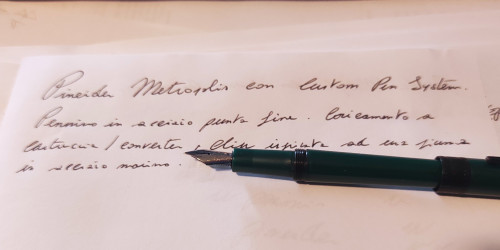 Pineider Metropolis con Custom Pen System.
Pennino in acciaio punta fine. Caricamento a
cartuccia / converter, clip ispirata ad una piuma
in acciaio marino.